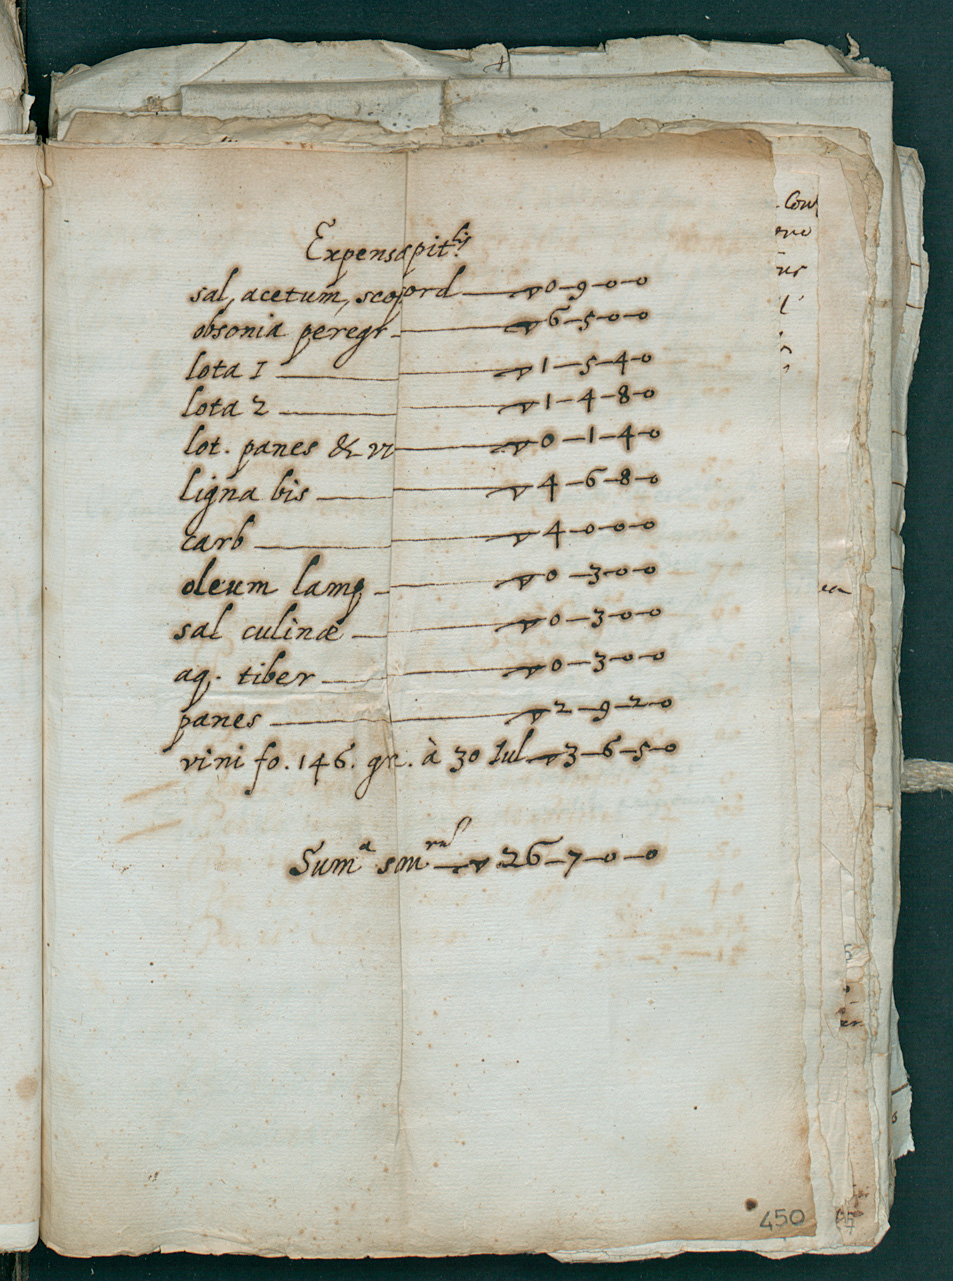 Expens apit^li
sal, acetum, scop ord — ▽ 0-9-0-0
obsonia peregr — ▽ 6-5-0-0
lota 1 — ▽ 1-5-4-0
lota 2 — ▽ 1-4-8-0
lot. panes & — ▽ 0-1-4-0
ligna bis — ▽ 4-6-8-0
carb — ▽ 4-0-0-0
oleum lamp — ▽ 0-3-0-0
sal culinæ — ▽ 0-3-0-0
aq. tiber — ▽ 0-3-0-0
panes — ▽ 2-9-2-0
vini fo. 146. à 30 Iul — ▽ 3-6-5-0
Sum^a — ▽ 26-7-0-0
450